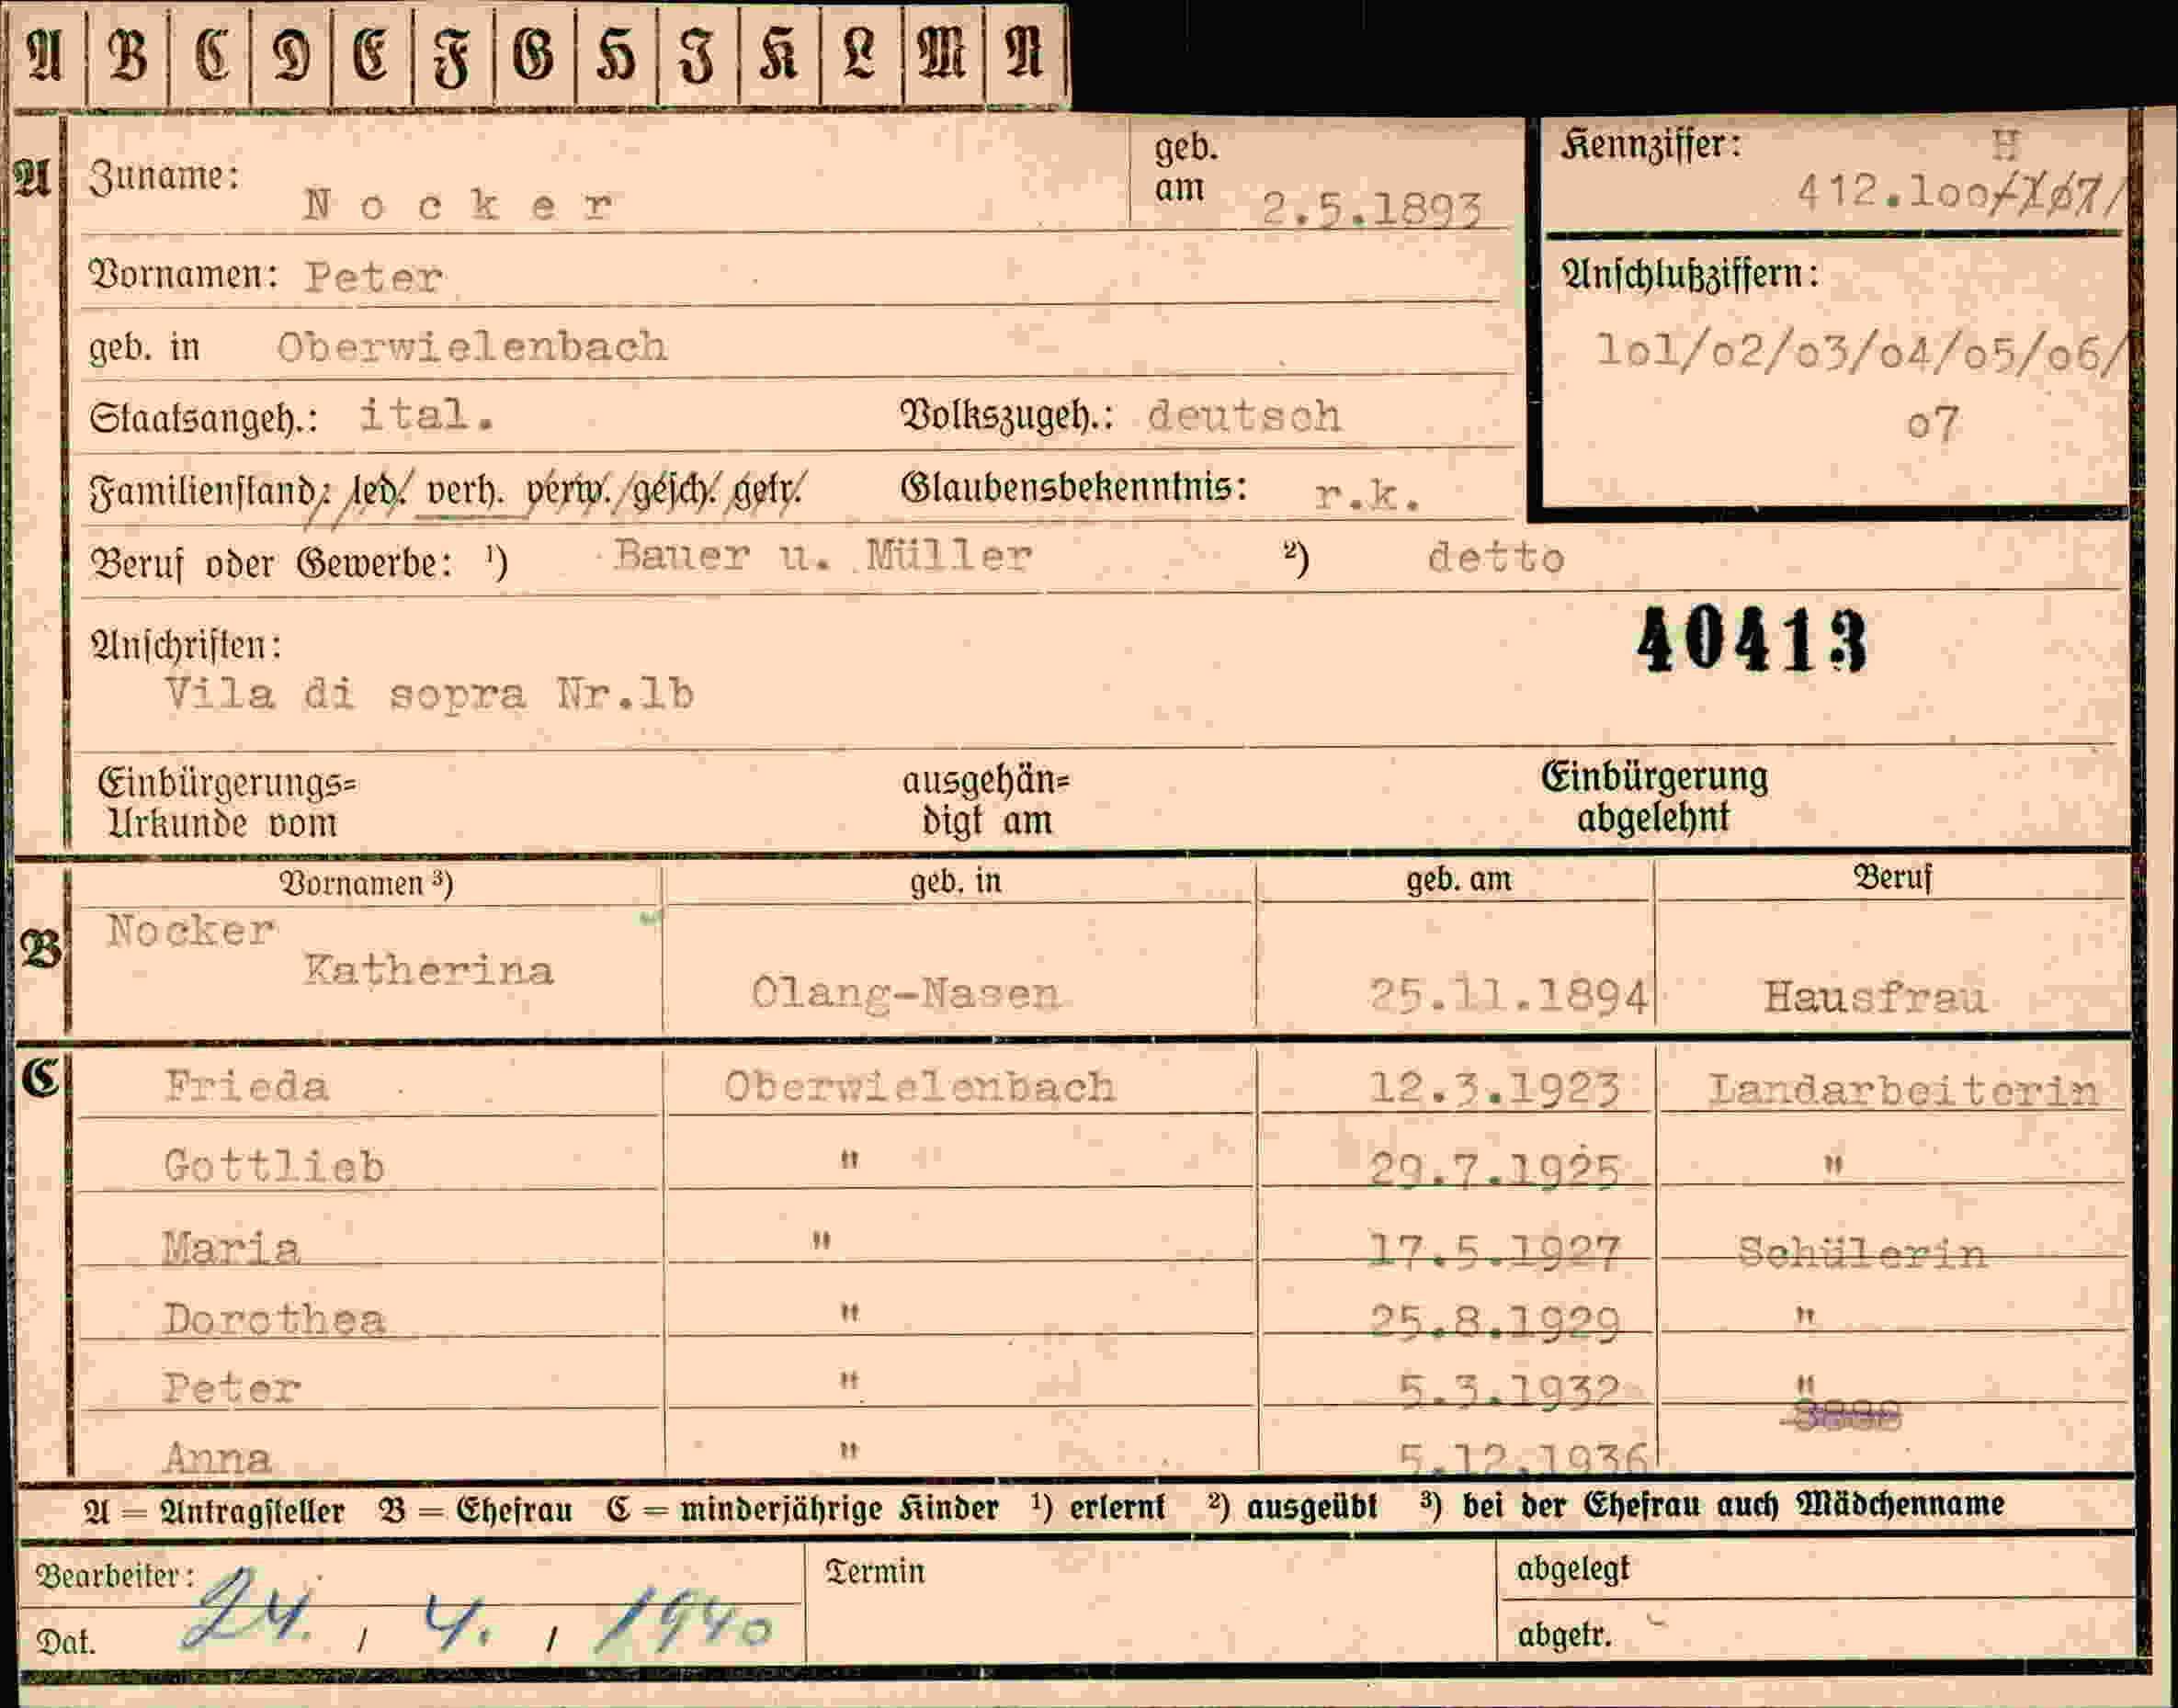 A B C D E F G H I K L M N
A Zuname: Nocker geb. am 2.5.1893
Kennziffer: H
412.100/107/
Vornamen: Peter
Anschlußziffern:
geb. in Oberwielenbach
lol/o2/o3/o4/o5/o6/
o7
Staatsangeh.: ital. Volkszugeh.: deutsch
Familienstand: led. verh. verw. gesch. getr. Glaubensbekenntnis: r.k.
Beruf oder Gewerbe: ¹) Bauer u. Müller ²) detto
40413
Anschriften:
Vila di sopra Nr.lb
Einbürgerungs= ausgehän= Einbürgerung
Urkunde vom digt am abgelehnt
Vornamen ³) geb. in geb. am Beruf
B Nocker
Katherina Olang-Nasen 25.11.1894 Hausfrau
C Frieda Oberwielenbach 12.3.1923 Landarbeiterin
Gottlieb " 29.7.1925 "
Maria " 17.5.1927 Schülerin
Dorothea " 25.8.1929 "
Peter " 5.3.1932 "
Anna " 5.12.1936
A = Antragsteller B = Ehefrau C = minderjährige Kinder ¹) erlernt ²) ausgeübt ³) bei der Ehefrau auch Mädchenname
Bearbeiter: Termin abgelegt
Dat. 24. / 4. / 1940 abgetr.